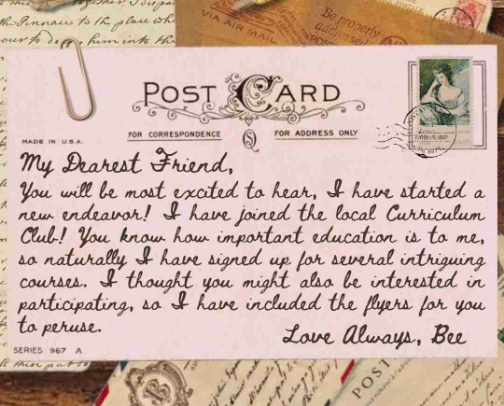 VIA AIR MAIL
Be properly
addressed
POST CARD
FOR CORRESPONDENCE
FOR ADDRESS ONLY
MADE IN U.S.A.
My Dearest Friend,
You will be most excited to hear, I have started a
new endeavor! I have joined the local Curriculum
Club! You know how important education is to me,
so naturally I have signed up for several intriguing
courses. I thought you might also be interested in
participating, so I have included the flyers for you
to peruse.
Love Always, Bee
SERIES 967 A
POST